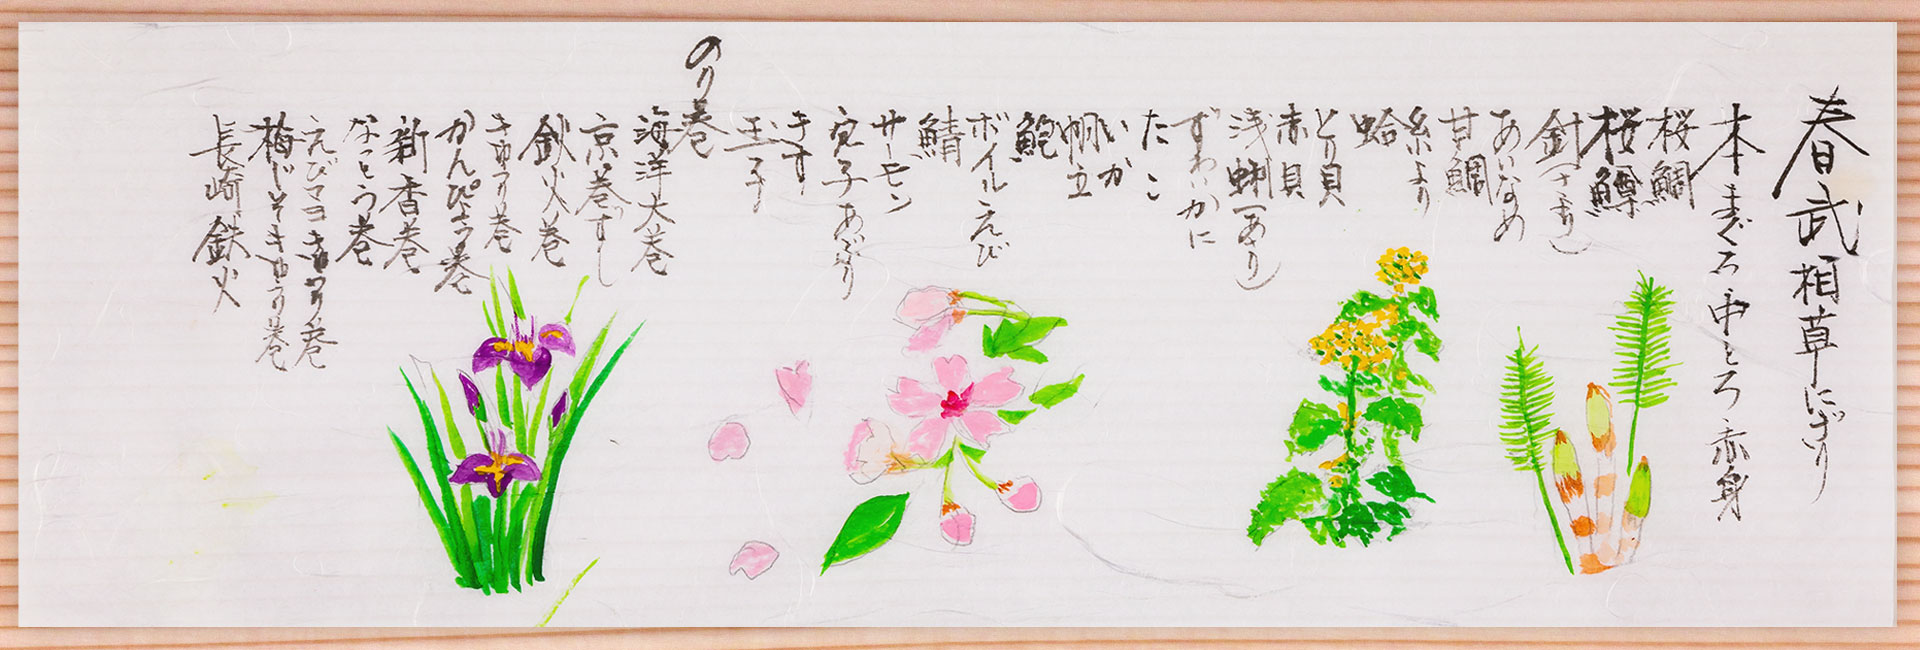 春武相草にぎり
本まぐろ中とろ赤身
桜鯛
桜鱒
針(さより)
あいなめ
甘鯛
糸より
蛤
とり貝
赤貝
浅蜊(あさり)
ずわいかに
たこ
いか
帆立
鮑
ボイルえび
鯖
サーモン
穴子あぶり
きす
玉子
のり巻
海洋大巻
京巻ずし
鉄火巻
きゅうり巻
かんぴょう巻
新香巻
なっとう巻
えびマヨきゅうり巻
梅じそきゅうり巻
長崎鉄火